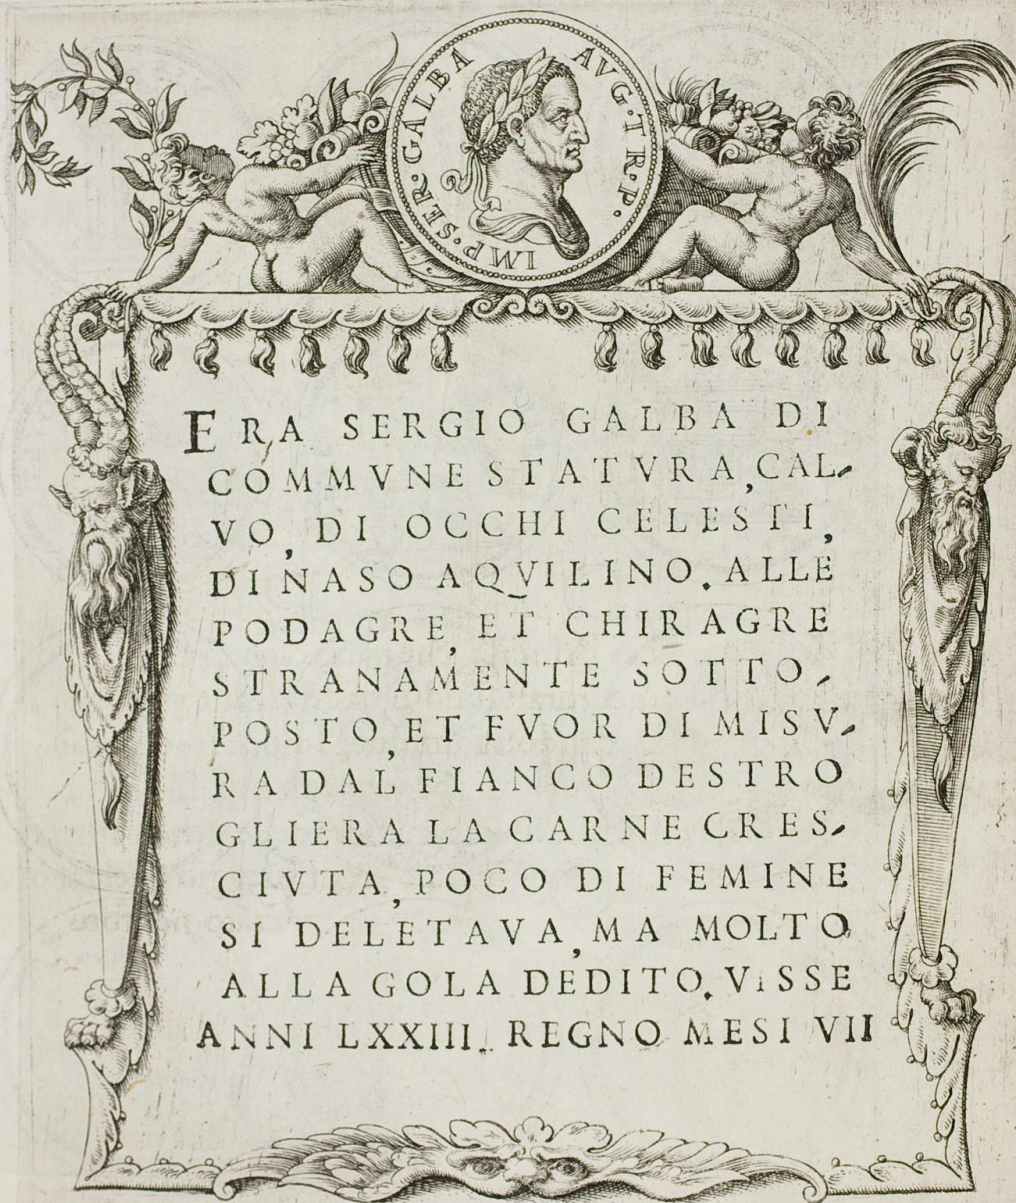 IMP·SER·GALBA AVG·TR·P·
ERA SERGIO GALBA DI
COMMVNE STATVRA, CAL-
VO, DI OCCHI CELESTI,
DI NASO AQVILINO. ALLE
PODAGRE, ET CHIRAGRE
STRANAMENTE SOTTO-
POSTO, ET FVOR DI MISV-
RA DAL FIANCO DESTRO
GLIERA LA CARNE CRES-
CIVTA, POCO DI FEMINE
SI DELETAVA, MA MOLTO
ALLA GOLA DEDITO. VISSE
ANNI LXXIII. REGNO MESI VII